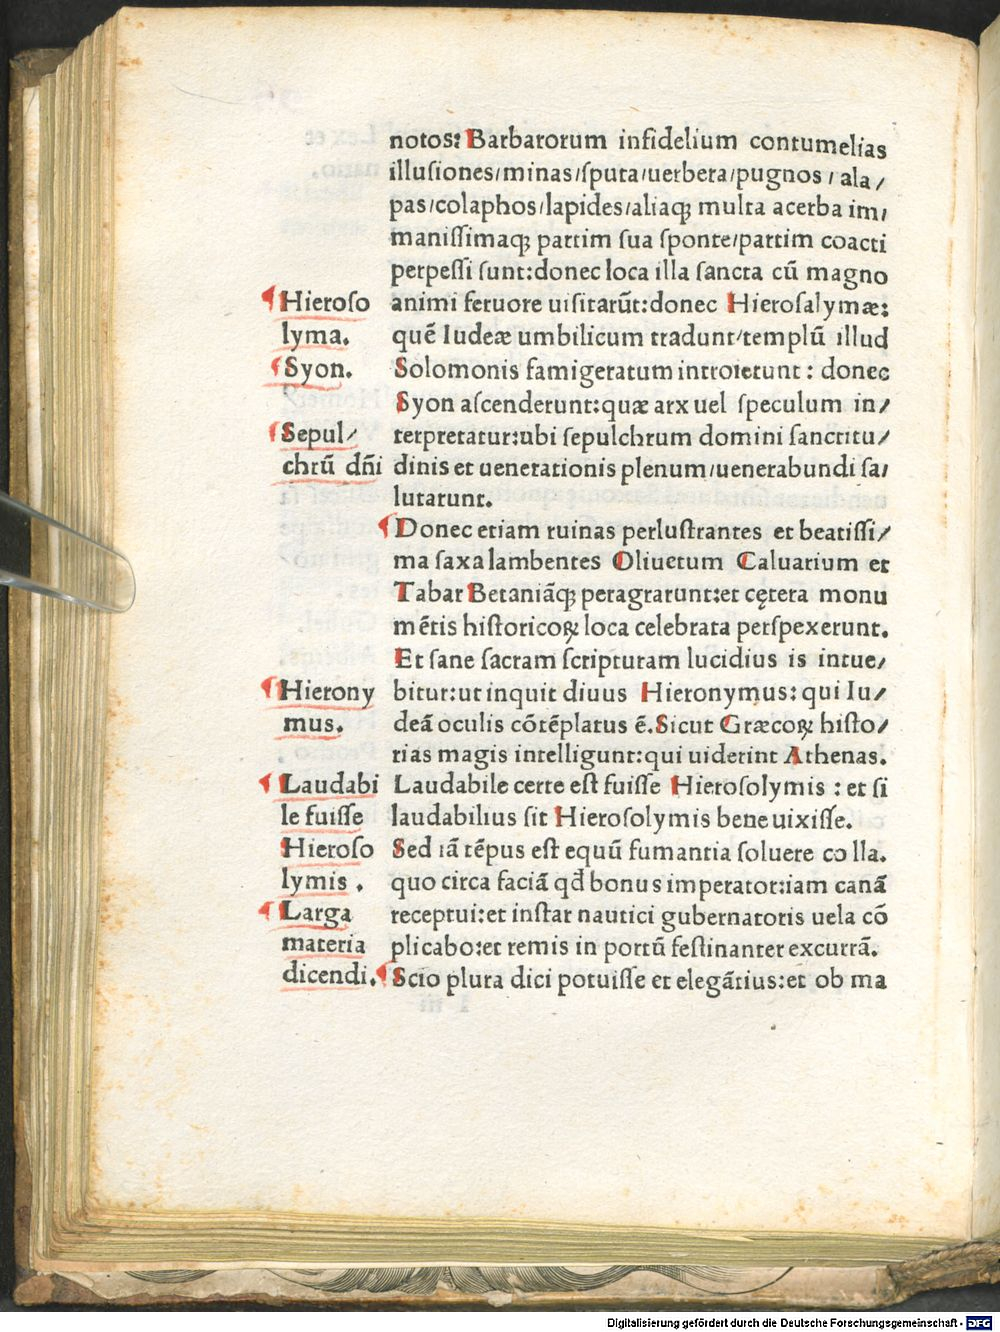 notos: Barbarorum infidelium contumelias
illuſiones/minas/ſputa/uerbera/pugnos / ala/
pas/colaphos/lapides/aliaqꝫ multa acerba im/
maniſſimaqꝫ partim ſua ſponte/partim coacti
perpeſſi ſunt:donec loca illa ſancta cū magno
¶ Hieroſo
lyma.
animi feruore uiſitarūt:donec Hieroſalymæ:
quē Iudeæ umbilicum tradunt/templū illud
¶ Syon.
Solomonis famigeratum introierunt : donec
Syon aſcenderunt:quæ arx uel ſpeculum in/
¶ Sepul/
chrū dn̄i
terpretatur:ubi ſepulchrum domini ſanctitu/
dinis et uenerationis plenum/uenerabundi ſa/
lutarunt.
¶ Donec etiam ruinas perluſtrantes et beatiſſi/
ma ſaxa lambentes Oliuetum Caluarium et
Tabar Betaniāqꝫ peragrarunt:et cętera monu
mētis hiſtoricoꝝ loca celebrata perſpexerunt.
Et ſane ſacram ſcripturam lucidius is intue/
¶ Hierony
mus.
bitur:ut inquit diuus Hieronymus: qui Iu/
deā oculis cōtēplatus ē.Sicut Græcoꝝ hiſto/
rias magis intelligunt:qui uiderint Athenas.
¶ Laudabi
le fuiſſe
Hieroſo
lymis .
Laudabile certe eſt fuiſſe Hieroſolymis : et ſi
laudabilius ſit Hieroſolymis bene uixiſſe.
Sed iā tēpus eſt equū fumantia ſoluere colla.
quo circa faciā qd̄ bonus imperator:iam canā
¶ Larga
materia
dicendi.
receptui:et inſtar nautici gubernatoris uela cō
plicabo:et remis in portū feſtinanter excurrā.
¶ Scio plura dici potuiſſe et elegātius:et ob ma
Digitalisierung gefördert durch die Deutsche Forschungsgemeinschaft - DFG